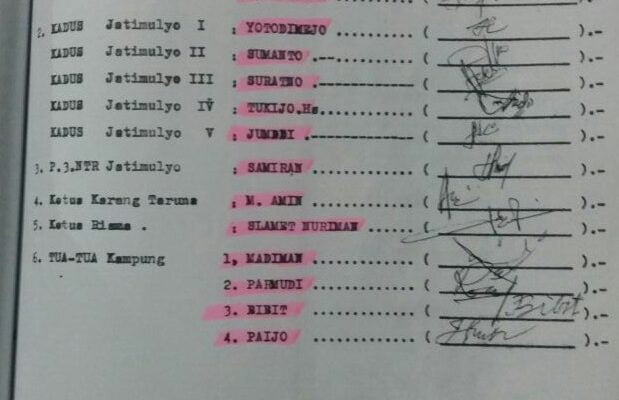 2. KADUS Jatimulyo I : YOTODIMEJO ........... ( ).-
KADUS Jatimulyo II : SUMANTO .--........... ( ).-
KADUS Jatimulyo III : SURATNO .------------- ( ).-
KADUS Jatimulyo IV : TUKIJO.Hs............. ( ).-
KADUS Jatimulyo V : JUMERI .------------- ( ).-
3. P.3.NTR Jatimulyo : SAMIRAN .............. ( ).-
4. Ketua Karang Taruna : M. AMIN .............. ( ).-
5. Ketua Risma . : SLAMET NURIMAN ....... ( ).-
6. TUA-TUA Kampung 1, MADIMAN ............. ( ).-
2. PARMUDI ............. ( ).-
3. BIBIT ............. ( Bibit ).-
4. PAIJO ............. ( ).-